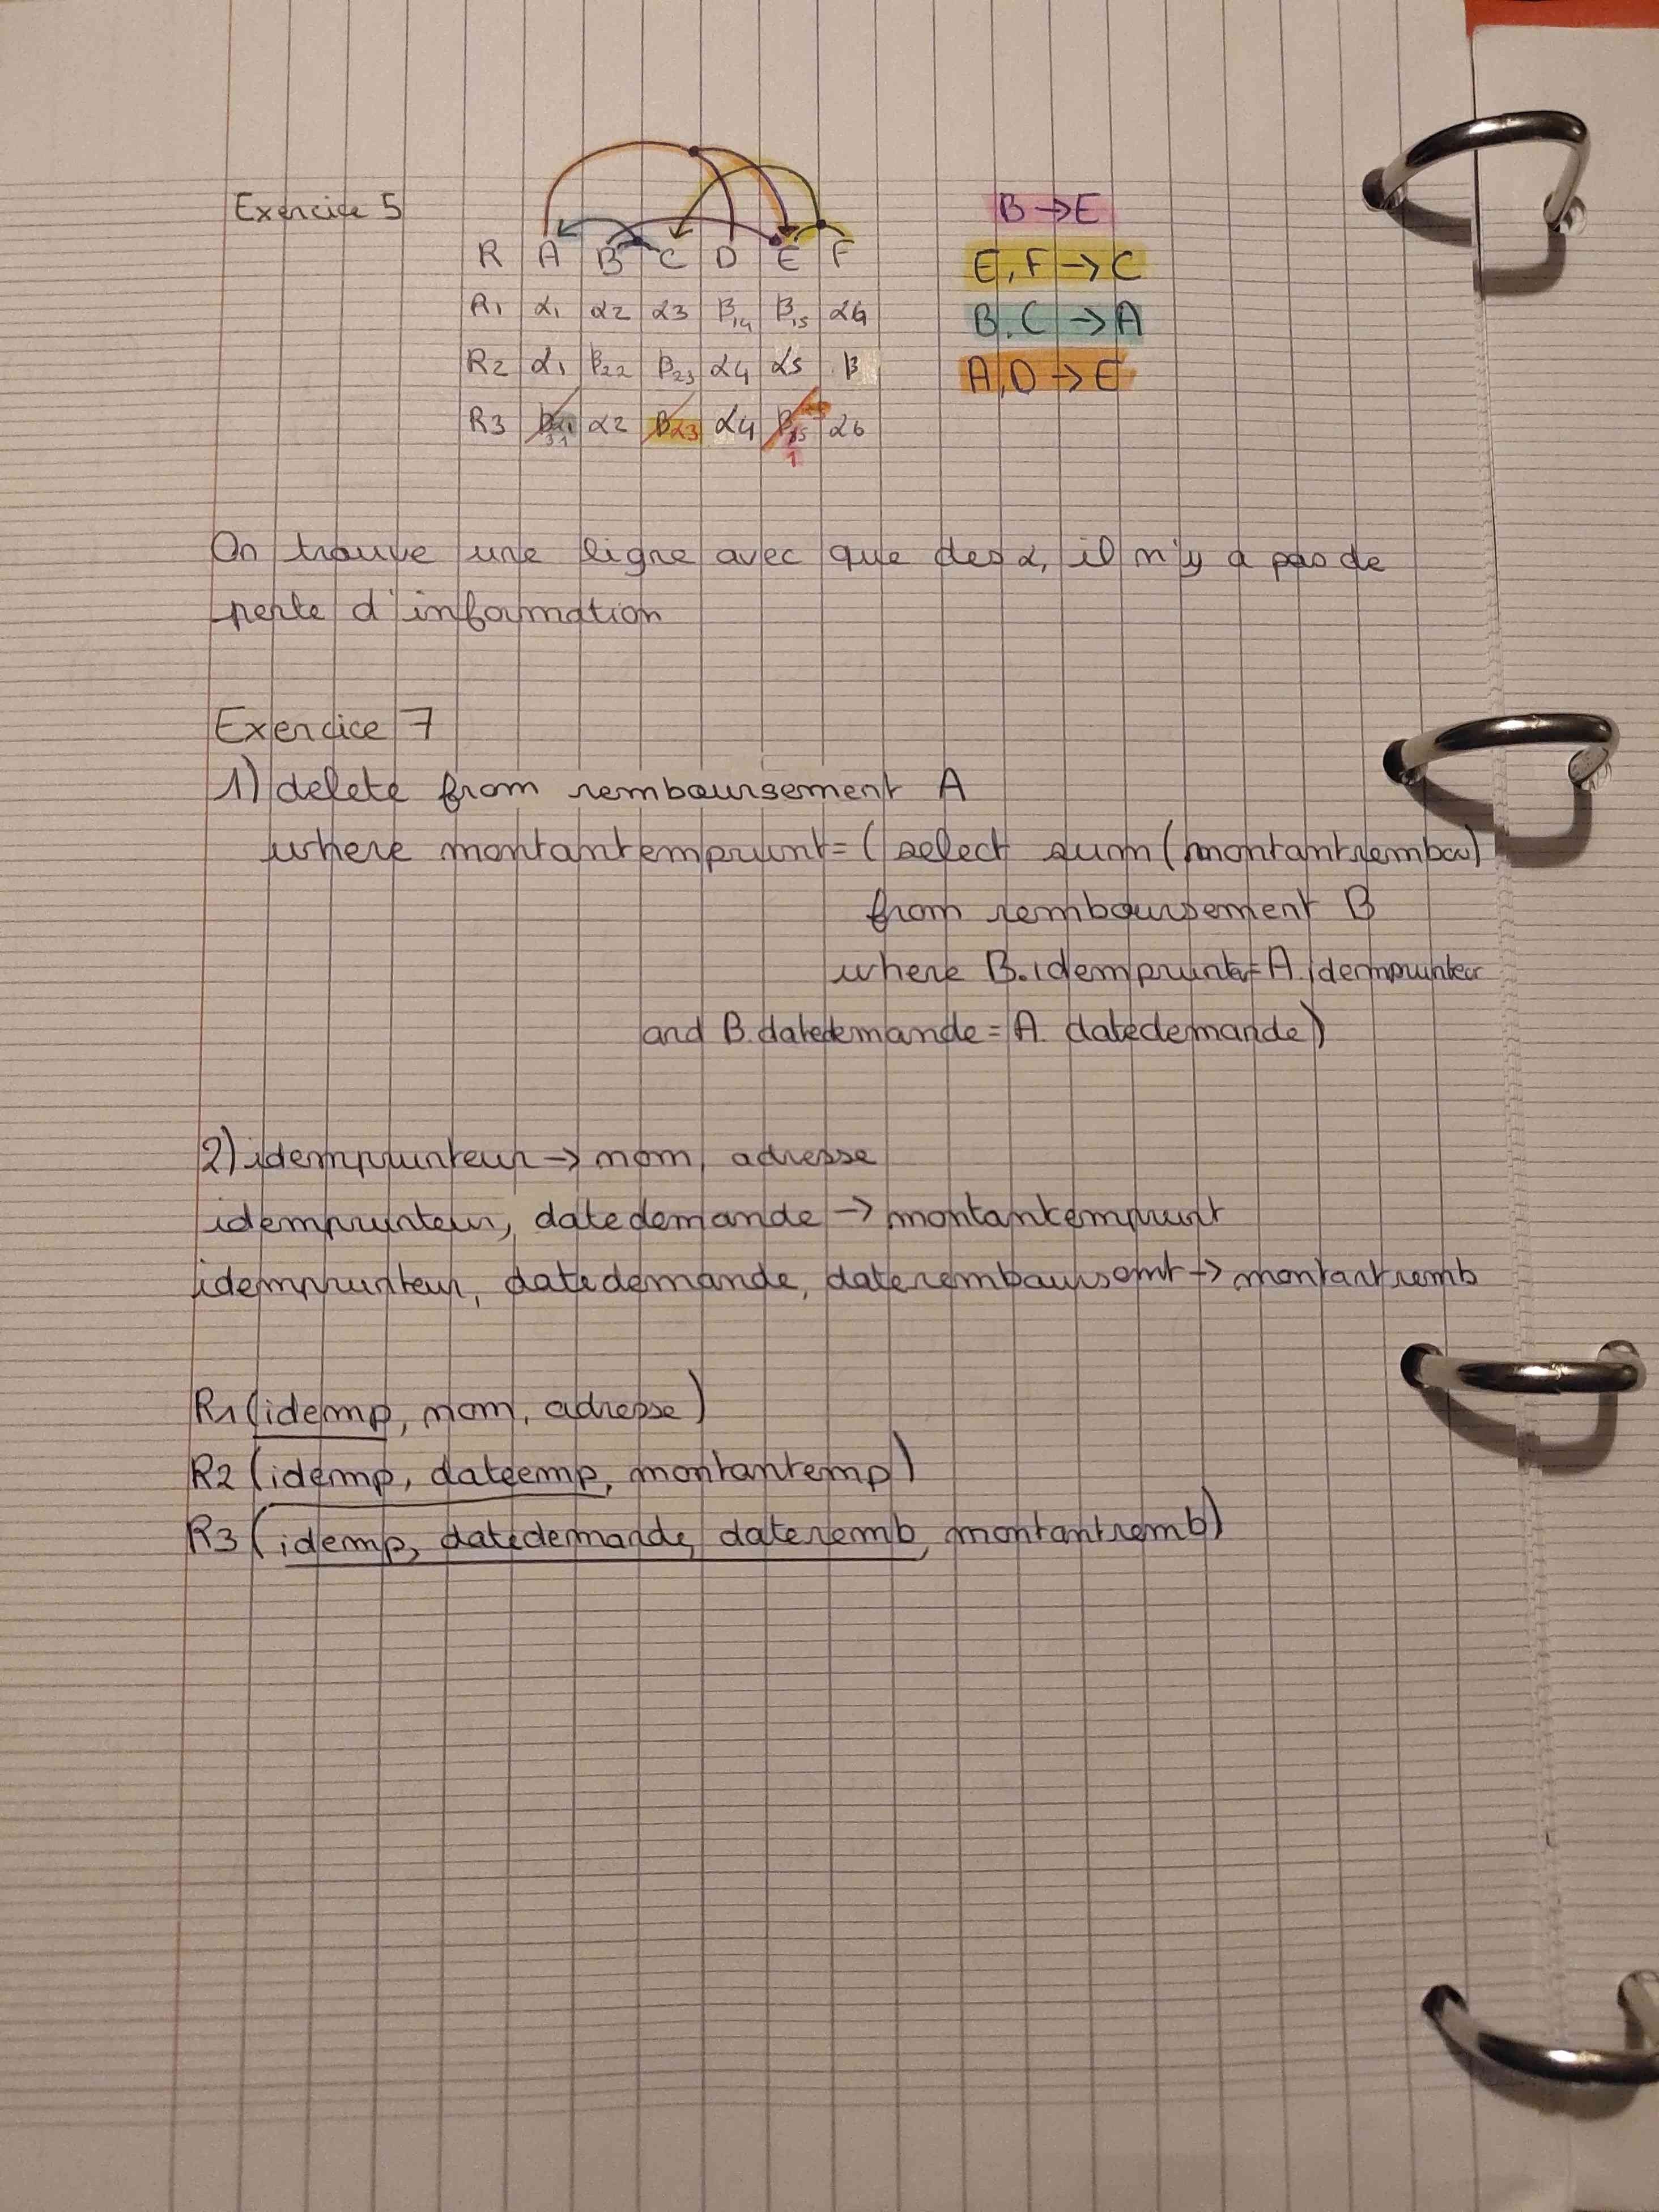 Exercice 5
B → E
R A B C D E F
E, F → C
R1 α1 α2 α3 β14 β15 α6
B, C → A
R2 α1 β22 β23 α4 α5 β
A, D → E
R3 α2 α4 α6
On trouve une ligne avec que des α, il n'y a pas de
perte d'information
Exercice 7
1) delete from remboursement A
where montantemprunt = ( select sum (montantrembou)
from remboursement B
where B.idemprunter = A.idemprunteur
and B.datedemande = A.datedemande)
2) idemprunteur → nom, adresse
idemprunteur, datedemande → montantemprunt
idemprunteur, datedemande, dateremboursemt → montantremb
R1 (idemp, nom, adresse)
R2 (idemp, dateemp, montantemp)
R3 (idemp, datedemande, dateremb, montantremb)